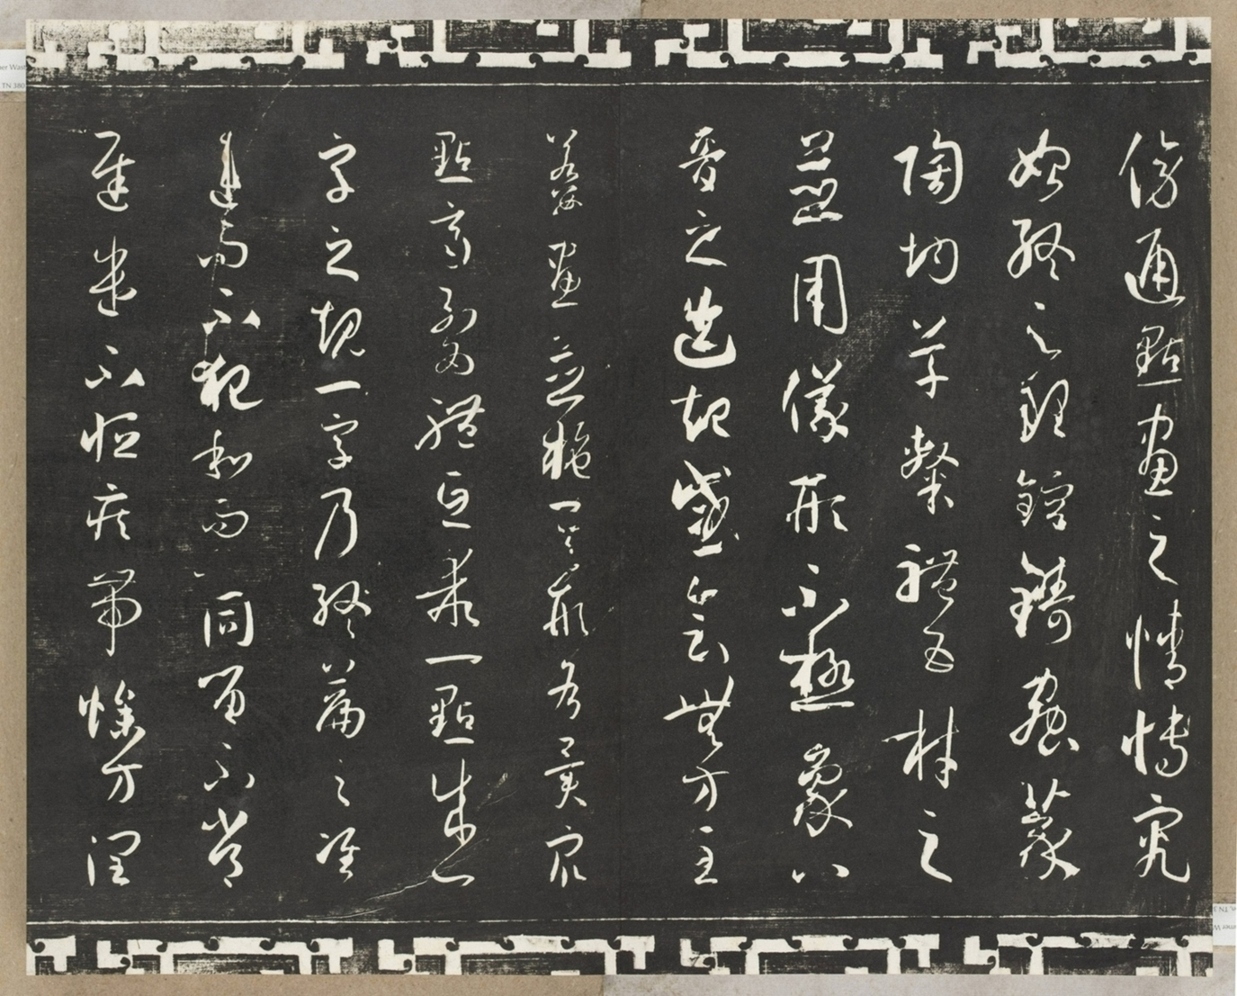 傍通點畫之情博究
始終之理鎔鑄蟲篆
陶均草隸體五材之
並用儀形不極象八
音之迭起感會無方至
若數畫並施其形各異眾
點齊列為體互乖一點成一
字之規一字乃終篇之准
違而不犯和而不同留不常
遲遣不恒疾帶燥方潤